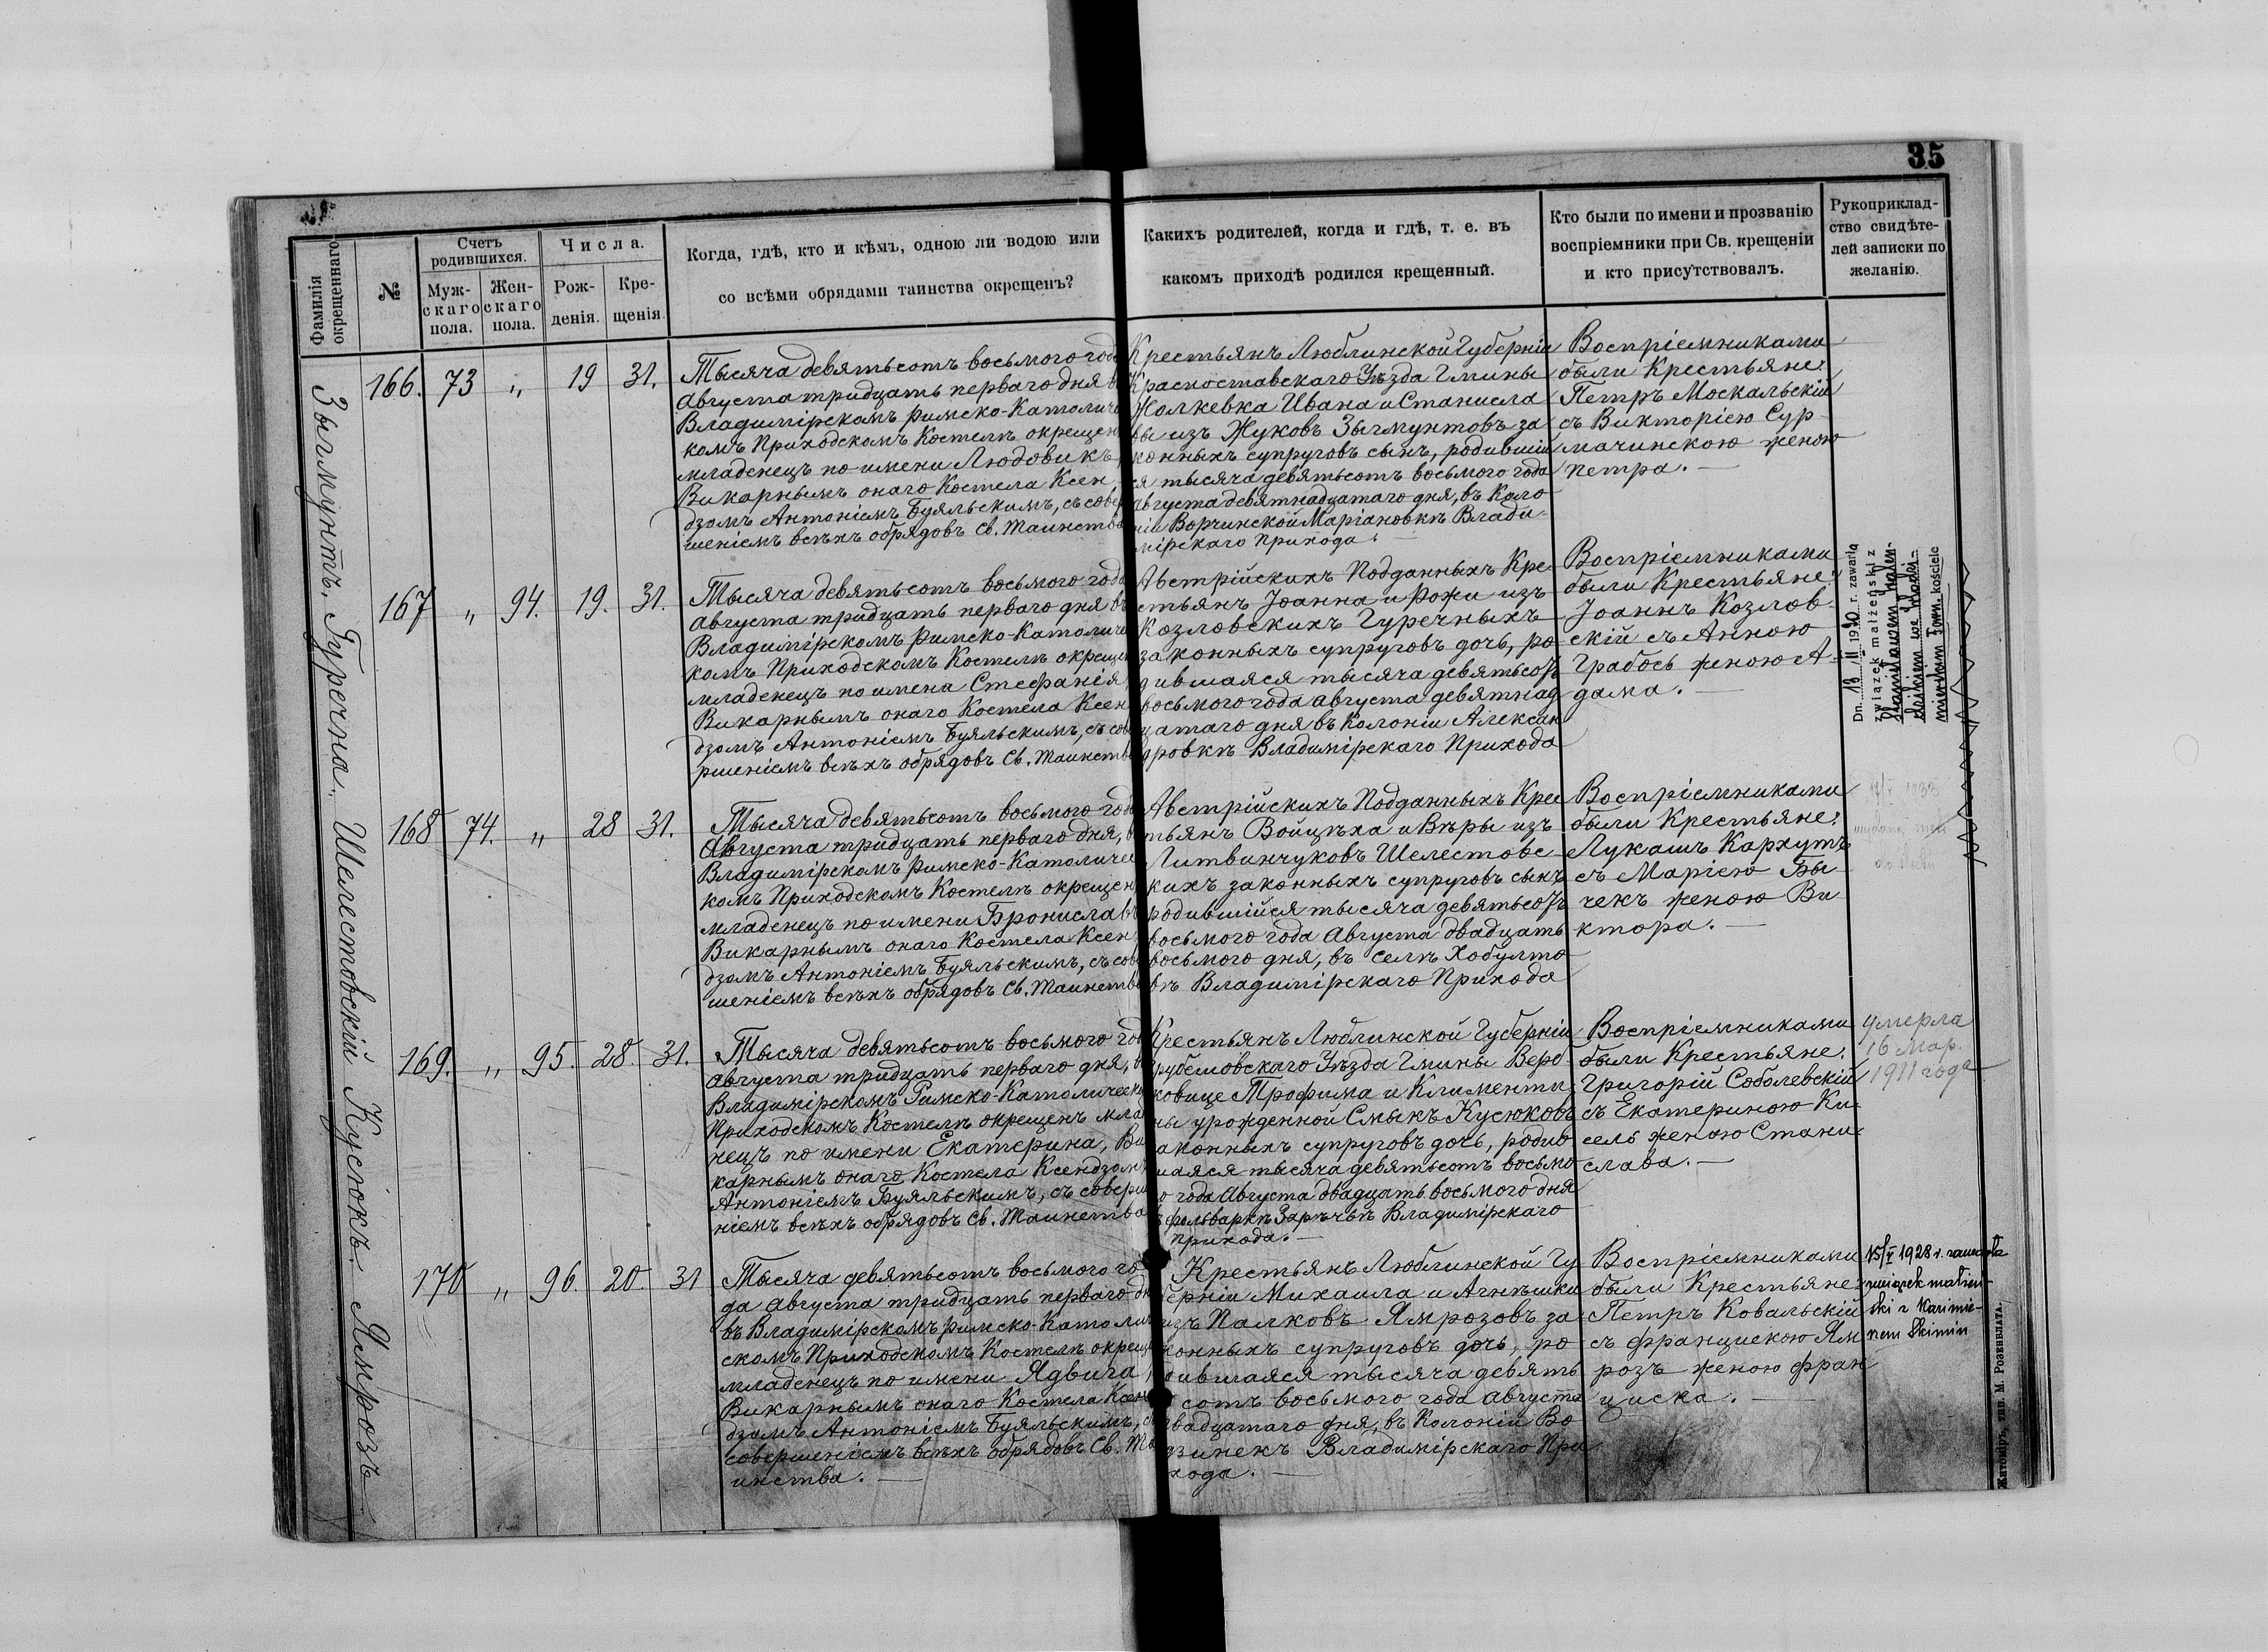 35
Фамилія окрещеннаго
№
Счетъ родившихся.
Муж-
скаго
пола.
Жен-
скаго
пола.
Числа.
Рож-
денія.
Кре-
щенія.
Когда, гдѣ, кто и кѣмъ, одною ли водою или
со всѣми обрядами таинства окрещенъ?
Какихъ родителей, когда и гдѣ, т. е. въ
какомъ приходѣ родился крещенный.
Кто были по имени и прозванію
воспріемники при Св. крещеніи
и кто присутствовалъ.
Рукоприклад-
ство свидѣте-
лей записки по
желанію.
Зыгмунтъ. Гуречна. Шелестовскій Кусюкъ. Ямрозъ
166. 73 „ 19 31.
Тысяча девятьсотъ восьмого год
августа тридцать перваго дня в
Владимірскомъ Римско-Католиче
комъ Приходскомъ Костелѣ окрещен
младенецъ по имени Людовикъ,
Викарнымъ онаго Костела Ксен
дзомъ Антоніемъ Буяльскимъ, съ совер
шеніемъ всѣхъ обрядовъ Св. Таинства
Крестьянъ Люблинской Губерніи
Красноставскаго Уѣзда Гмины
Жолкевка Ивана и Станисла
вы изъ Жуковъ Зыгмунтовъ за
конныхъ супруговъ сынъ, родившій
ся тысяча девятьсотъ восьмого года
августа девятнадцатаго дня, въ Коло
ніи Ворчинской Маріановкѣ Влади-
мірскаго Прихода.
Воспріемниками
были Крестьяне:
Петръ Москальскій
съ Викторіею Сур-
мачинскою женою
Петра. —
167 „ 94. 19. 31.
Тысяча девятьсотъ восьмого года
августа тридцать перваго дня въ
Владимірскомъ Римско-Католиче
комъ Приходскомъ Костелѣ окрещен
младенецъ по имена Стефанія,
Викарнымъ онаго Костела Ксен
дзомъ Антоніемъ Буяльскимъ, съ сов
ршеніемъ всѣхъ обрядовъ Св. Таинств
Австрійскихъ Подданныхъ Кре
стьянъ Іоанна и Рожи изъ
Козловскихъ Гуречныхъ
законныхъ супруговъ дочь, ро
дившаяся тысяча девятьсотъ
восьмого года августа девятнад
цатаго дня въ Колоніи Алексан
дровкѣ Владимірскаго Прихода
Воспріемниками
были Крестьяне:
Іоаннъ Козлов-
скій съ Анною
Грабось женою А-
дама. —
Dn. 13 II 1930 r. zawarła
związek małżeński z
kościele
168 74. „ 28 31.
Тысяча девятьсотъ восьмого год
Августа тридцать перваго дня, в
Владимірскомъ Римско-Католичес
комъ Приходскомъ Костелѣ окрещен
младенецъ по имени Брониславъ
Викарнымъ онаго Костела Ксен
дзомъ Антоніемъ Буяльскимъ, съ сов
шеніемъ всѣхъ обрядовъ Св. Таинств
Австрійскихъ Подданныхъ Крес
тьянъ Войцѣха и Вѣры изъ
Литвинчуковъ Шелестовс-
кихъ законныхъ супруговъ сынъ
родившійся тысяча девятьсотъ
восьмого года Августа двадцать
восьмого дня, въ селѣ Хобулто
вѣ Владимірскаго Прихода
Воспріемниками
были Крестьяне:
Лукашъ Кархутъ
съ Маріею Бы
чекъ женою Ви
ктора. —
169. „ 95. 28. 31.
Тысяча девятьсотъ восьмого год
августа тридцать перваго дня, в
Владимірскомъ Римско-Католическ
Приходскомъ Костелѣ окрещенъ мла
нецъ по имени Екатерина, Ви
карнымъ онаго Костела Ксендзом
Антоніемъ Буяльскимъ, съ соверш
ніемъ всѣхъ обрядовъ Св. Таинства
Крестьянъ Люблинской Губерніи
рубешовскаго Уѣзда Гмины Верб
ковице Трофима и Климента
ны урожденной Смыкъ Кусюковъ
аконныхъ супруговъ дочь, родив
шаяся тысяча девятьсотъ восьмо
о года Августа двадцать восьмого дня
въ фольваркѣ Зарѣчьѣ Владимірскаго
Прихода. —
Воспріемниками
были Крестьяне:
Григорій Соболевскій
съ Екатериною Ки-
сель женою Стани-
слава. —
Умерла
16 Мар.
1911 года
170 „ 96. 20. 31
Тысяча девятьсотъ восьмого го
да августа тридцать перваго дн
въ Владимірскомъ Римско-Католич
скомъ Приходскомъ Костелѣ окрещ
младенецъ по имени Ядвига,
Викарнымъ онаго Костела Ксен
дзомъ Антоніемъ Буяльскимъ, съ
совершеніемъ всѣхъ обрядовъ Св. Та
инства. —
Крестьянъ Люблинской Гу
берніи Михаила и Агнѣшки
изъ Палковъ Ямрозовъ за
конныхъ супруговъ дочь, ро
дившаяся тысяча девять
сотъ восьмого года августа
двадцатаго дня, въ Колоніи Во
дзинекъ Владимірскаго При
хода. —
Воспріемниками
были Крестьяне:
Петръ Ковальскій
съ Францискою Ям
розъ женою Фран
циска. —
15/V 1928 r. zawarła
związek małżeń-
ski z Kazimie-
rzem Skimin
Житоміръ, тип. М. Розенблата.